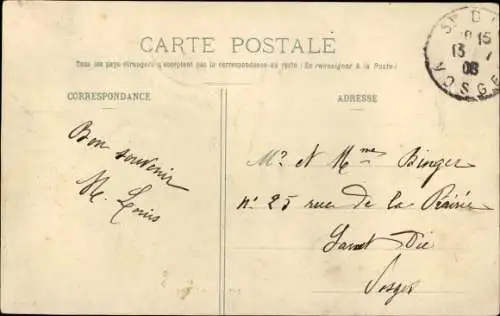 CARTE POSTALE
Tous les pays étrangers n'acceptent pas la correspondance au recto (Se renseigner à la Poste)
CORRESPONDANCE
ADRESSE
Bon souvenir
M. Louis
Mr et Mme Binger
n° 25 rue de la Prairie
Saint Dié
Vosges
ST D
15
13 7
08
VOSGE